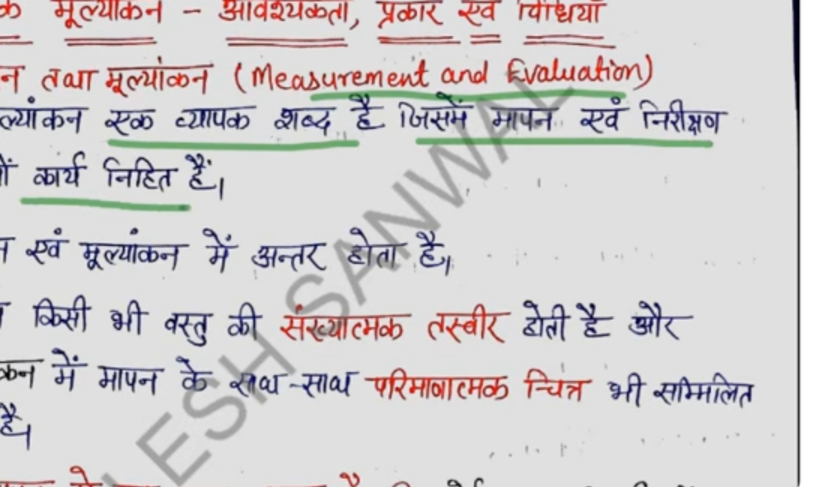 मूल्यांकन - आवश्यकता, प्रकार एवं विधियाँ
तथा मूल्यांकन (Measurement and Evaluation)
ल्यांकन एक व्यापक शब्द है जिसमें मापन एवं निरीक्षण
कार्य निहित हैं।
एवं मूल्यांकन में अन्तर होता है।
किसी भी वस्तु की संख्यात्मक तस्वीर होती है और
कन में मापन के साथ-साथ परिमाणात्मक चित्र भी सम्मिलित
है।
LESH SANWAL